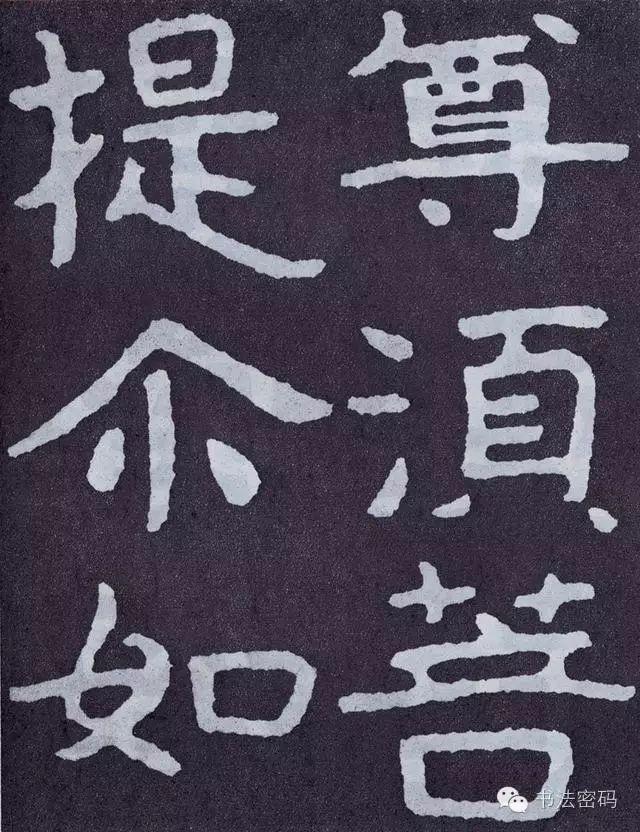 尊湏菩
提尒如
书法密码